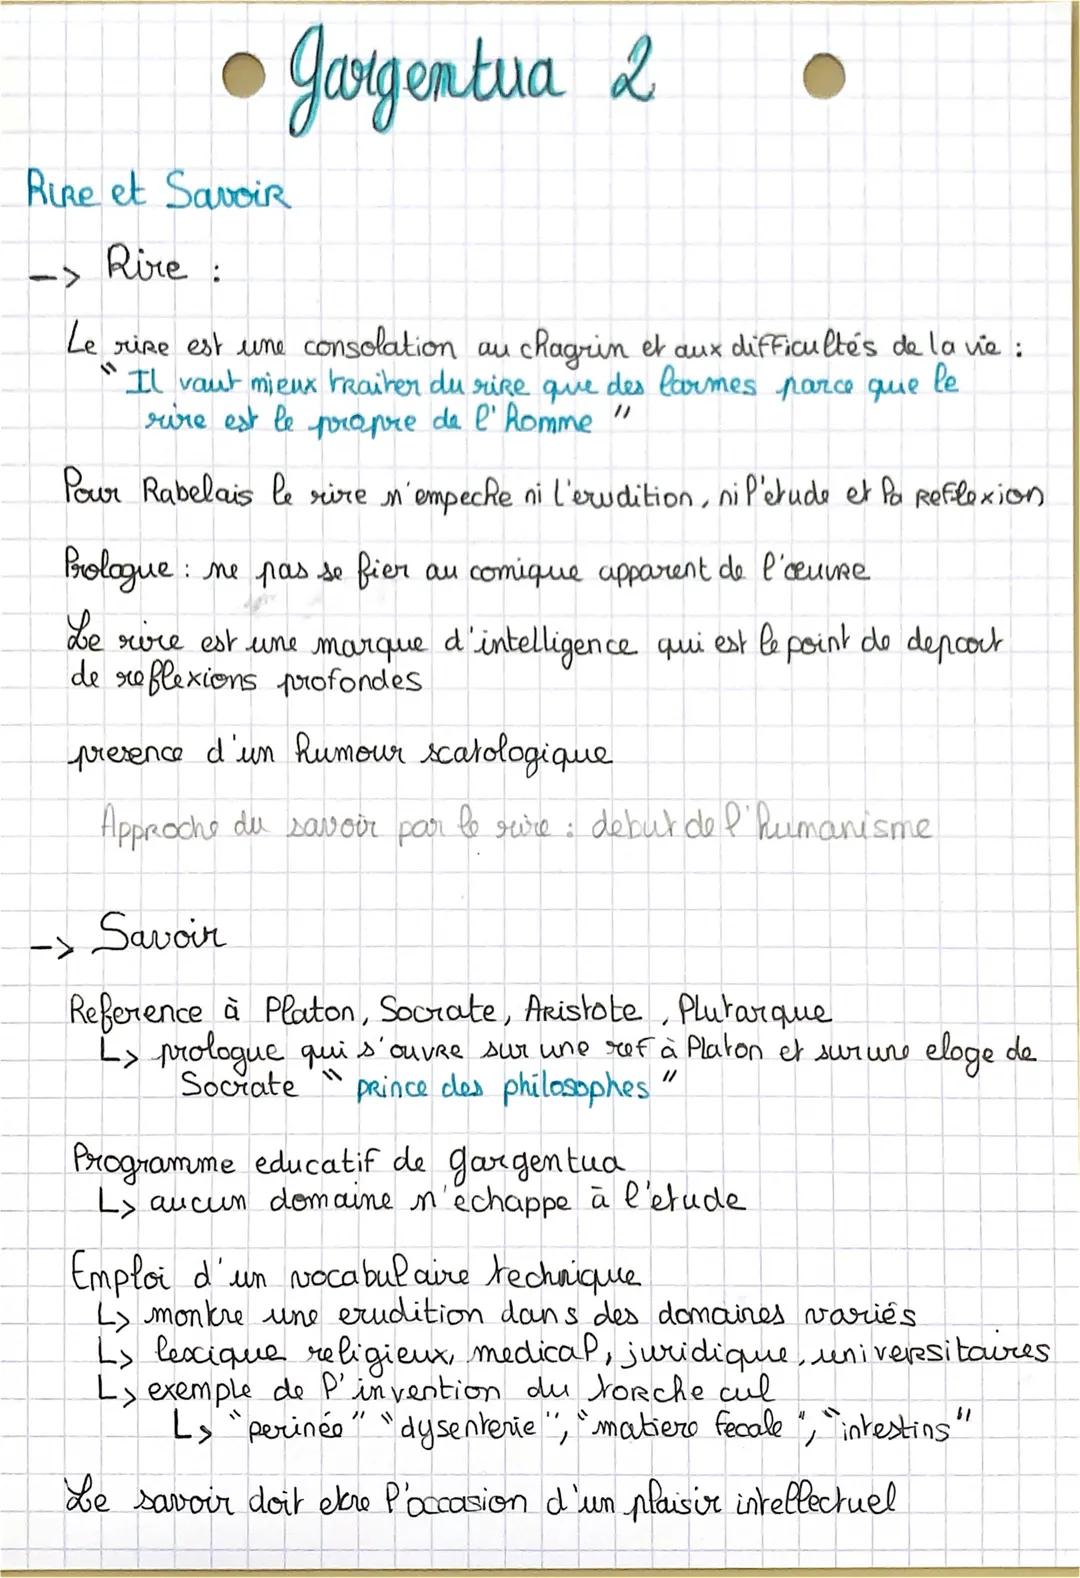 Gargentua 2
Rire et Savoir
-> Rire :
Le rire est une consolation au chagrin et aux difficultés de la vie :
" Il vaut mieux traiter du rire que des larmes parce que le
rire est le propre de l'homme "
Pour Rabelais le rire n'empeche ni l'erudition, ni l'etude et la reflexion
Prologue : ne pas se fier au comique apparent de l'œuvre
Le rire est une marque d'intelligence qui est le point de depart
de reflexions profondes
presence d'un humour scatologique
Approche du savoir par le rire : debut de l'humanisme
-> Savoir
Reference à Platon, Socrate, Aristote, Plutarque
L> prologue qui s'ouvre sur une ref à Platon et sur une eloge de
Socrate " prince des philosophes "
Programme educatif de gargentua
L> aucun domaine n'echappe à l'etude
Emploi d'un vocabulaire technique
L> montre une erudition dans des domaines variés
L> lexique religieux, medical, juridique, universitaires
L> exemple de l'invention du torche cul
L> "perinée" "dysenterie", "matiere fecale", "intestins"
Le savoir doit etre l'occasion d'un plaisir intellectuel